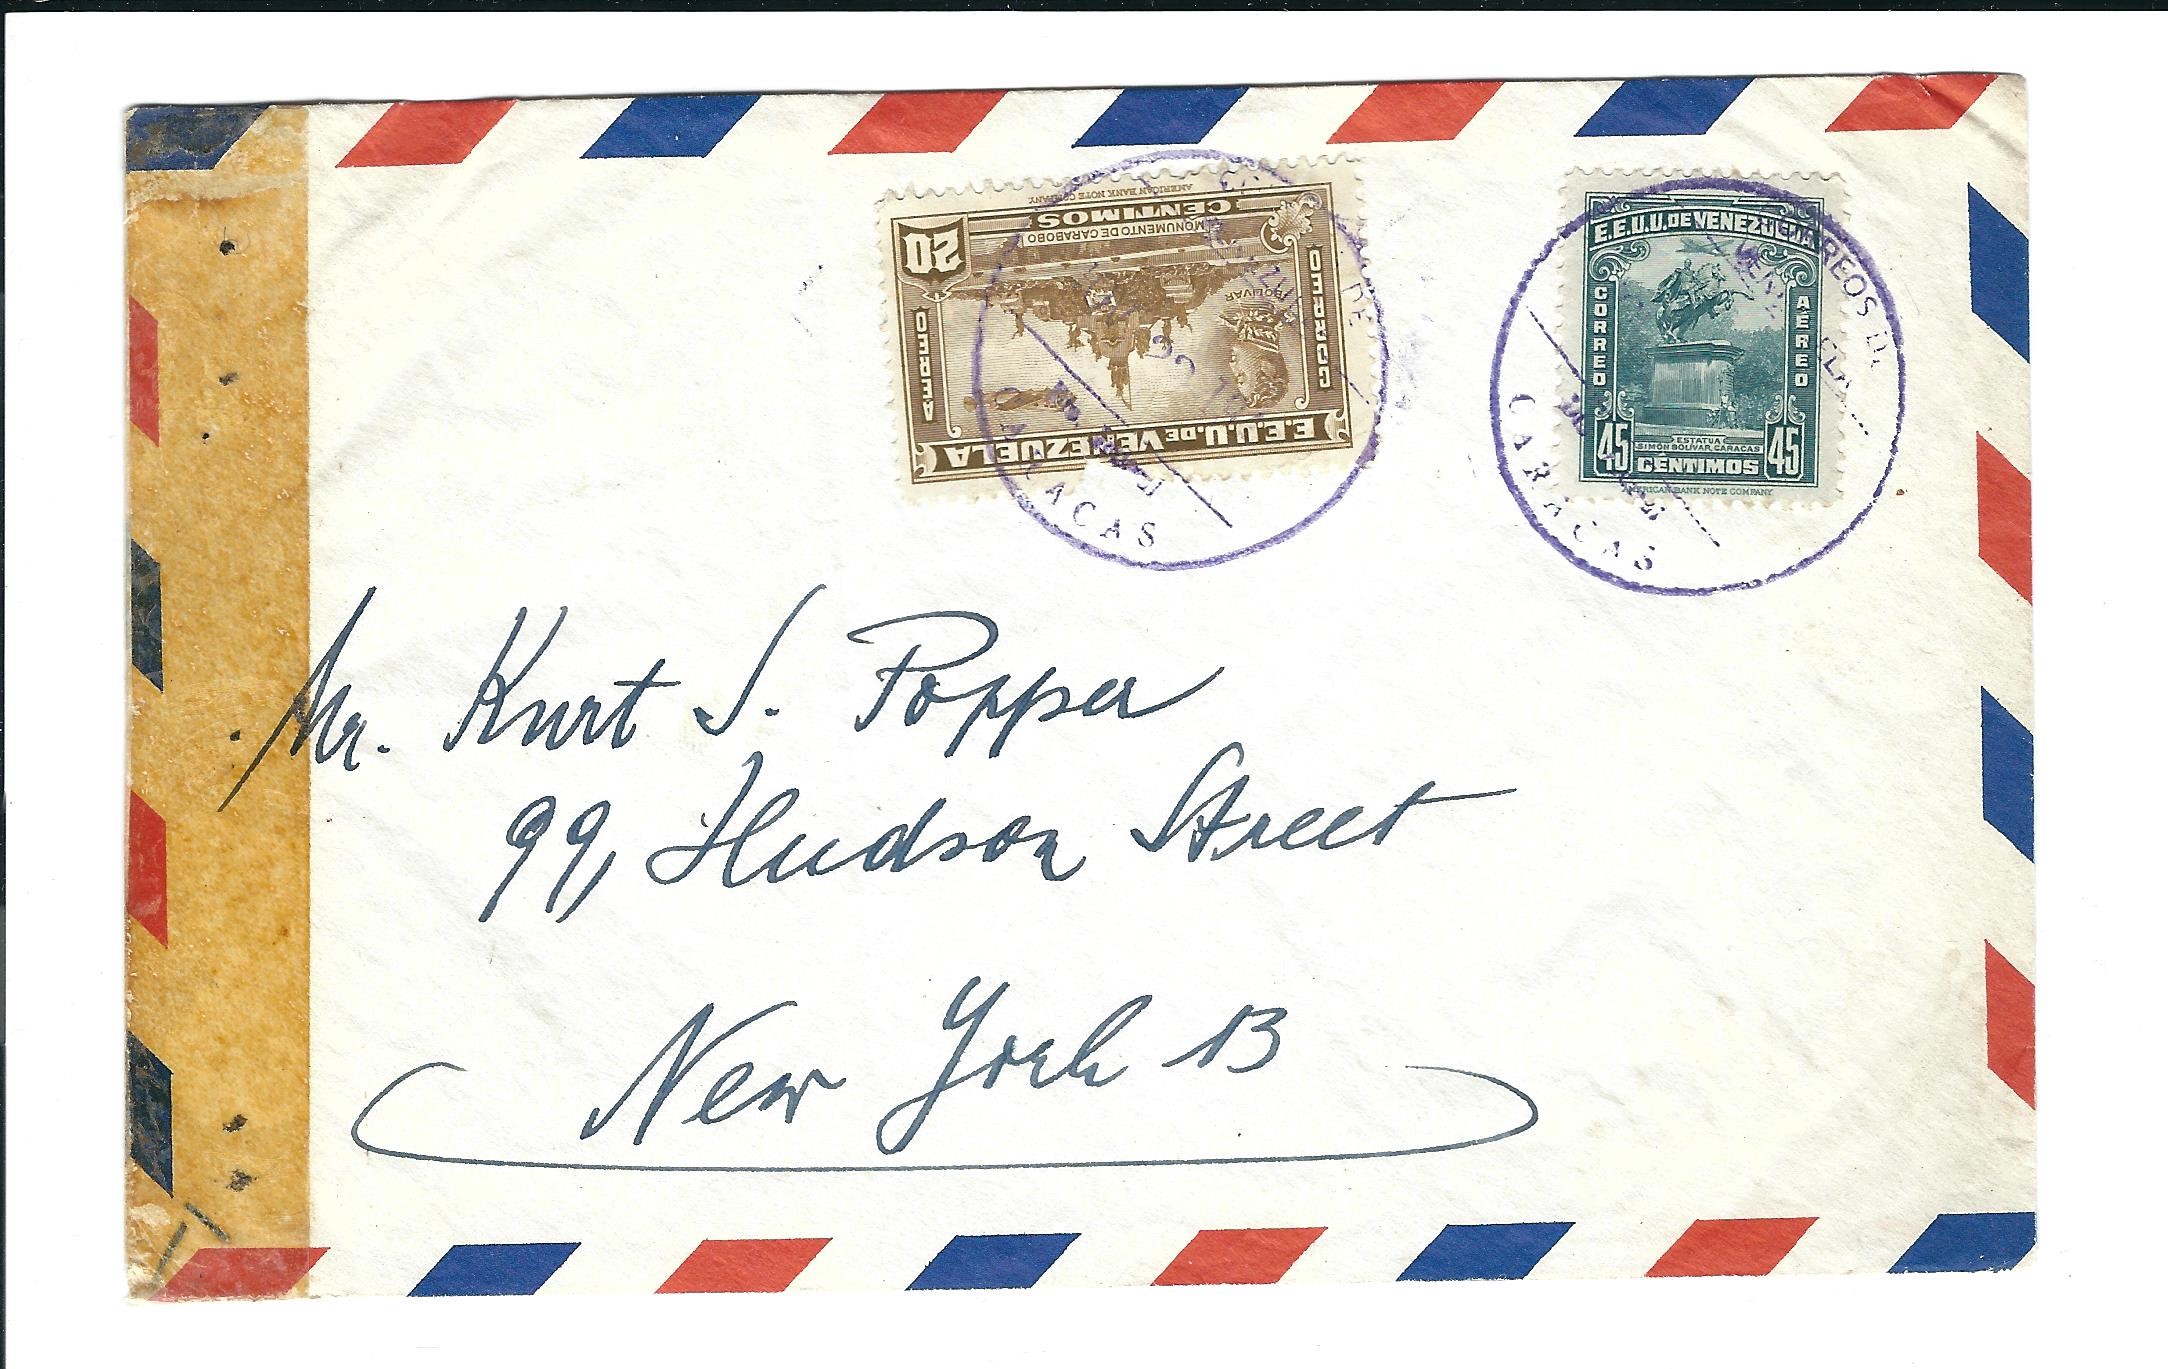 E.E.U.U. DE VENEZUELA
CORREO
AÉREO
BOLIVAR
MONUMENTO DE CARABOBO
20
CENTIMOS
AMERICAN BANK NOTE COMPANY
DE
CARACAS
E.E.U.U. DE VENEZUELA
CORREO
AÉREO
ESTATUA
SIMON BOLIVAR, CARACAS
45 CÉNTIMOS 45
AMERICAN BANK NOTE COMPANY
CORREOS DE
VENEZUELA
CARACAS
Mr. Kurt S. Popper
99, Hudson Street
New York 13